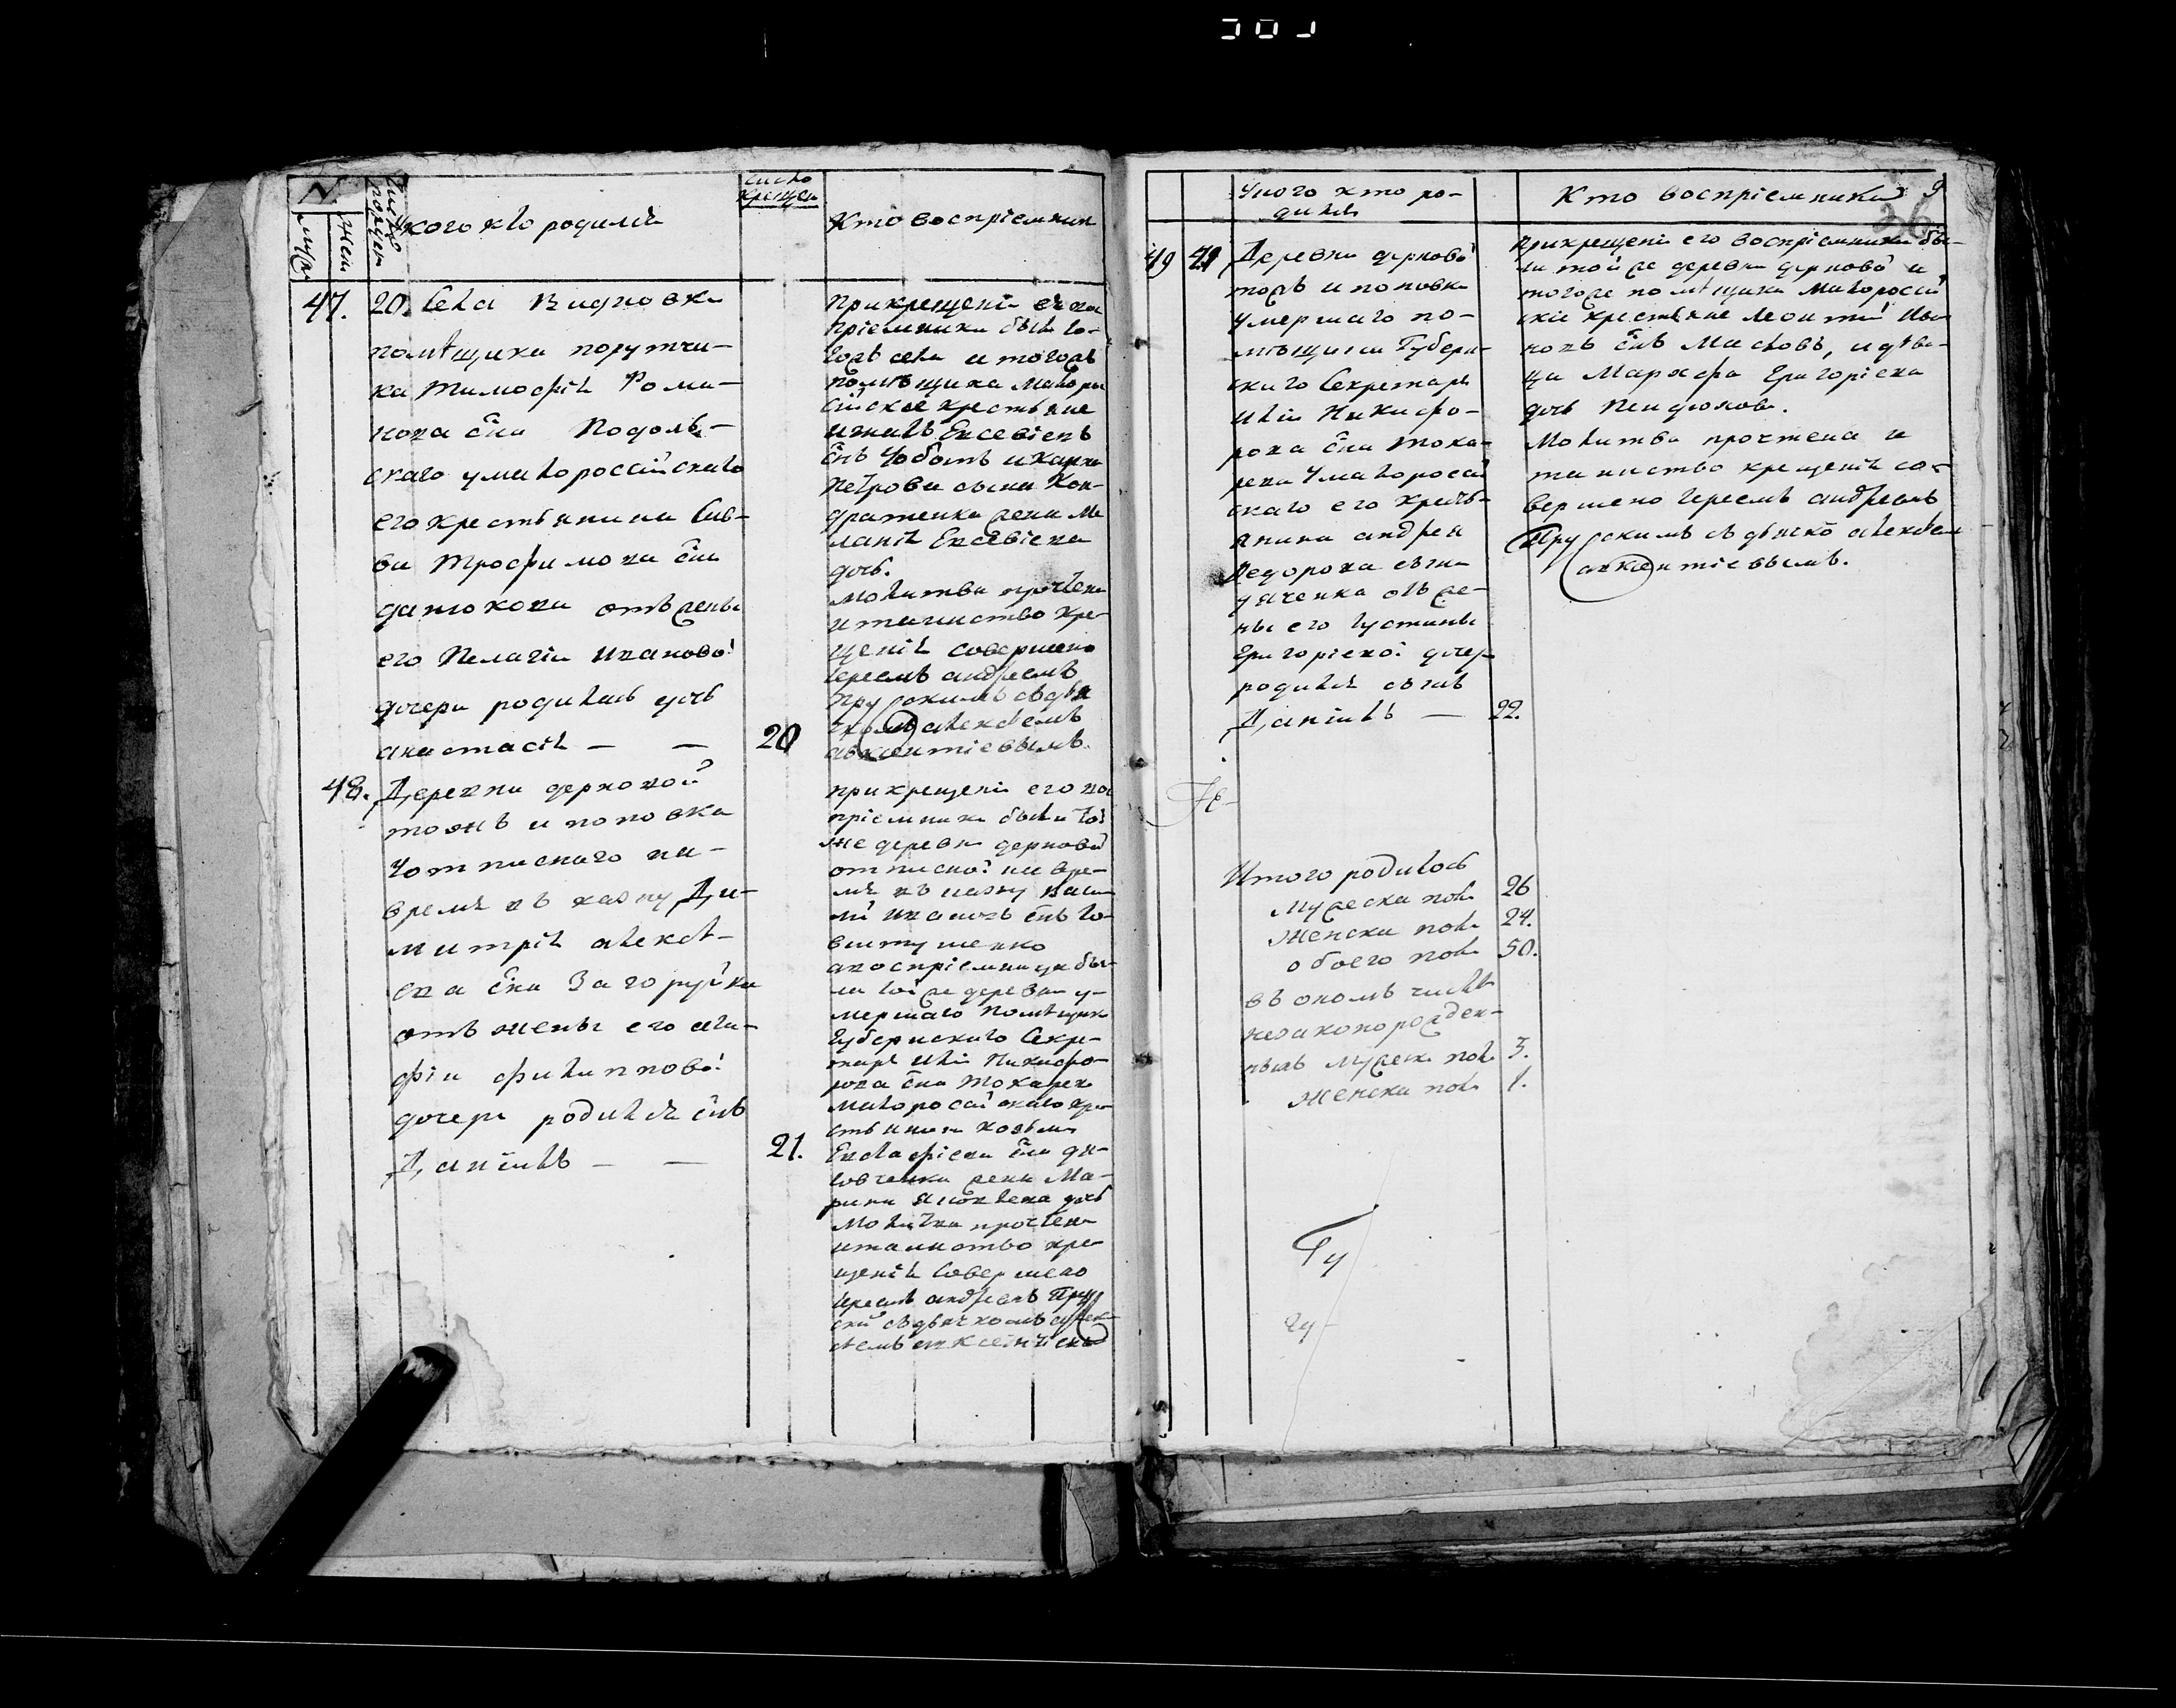 N
муж
жен
число рожден
У кого кто родился
число крещен
Кто восприемник
47.
20. Села Видновки
помѣщика порутчи-
ка Тимофѣя Рома-
нова сна Подоль-
скаго у малороссийскаго
его крестьянина Сав-
ви Трофимова сна
датюкова отъ жены
его Пелагіи Ивановой
дочери родилась дочь
анастасія — —
20
При крещеніи ея вос
пріемники были то-
гожъ села и тогожъ
помѣщика малоро
сійские крестьяне
Евсевіевъ
снъ Чоботъ и
Петрова сына Кон-
дратенка жена Ме
ланія Евсевіева
дочь.
молитва прочтена
и таинство кре-
щенія совершено
Іереемъ андреемъ
Прускимъ съ дья
чкомъ алексѣемъ
авксентіевымъ.
48.
Деревни дерновой
тожъ и поповка
У отписнаго на-
время въ казну Ди-
митрія алексѣ-
ева сна Загоруйка
отъ жены его ага-
фіи филипповой
дочери родился снъ
Даніилъ — —
21.
при крещеніи его вос
пріемники были той
же деревни дерновой
отписной на вре-
мя въ казну Васи
лій Ивановъ снъ То-
встушенко
а воспріемница бы-
ла той же деревни у-
мершаго помѣщика
Губернскаго Секре-
таря Иліи Никифо-
рова сна Токарева
малоросійскаго кре-
стьянина козьмы
Евстафіева сна дя-
ченка жена Ма-
рина Яковлева дочь
Молитва прочтена
и таинство кре-
щенія совершено
Іереемъ андреемъ Пру
скимъ съ дьячкомъ алек
сѣемъ авксентіевымъ
У кого кто ро-
дился
Кто воспріемники
9
36
49
21
Деревни дерновой
тожъ и поповка
Умершаго по-
мѣщика Губерн-
скаго Секретаря
Иліи Никифо-
рова сна Тока-
рева У малоросій
скаго его кресть-
янина андрея
Федорова сына
дяченка отъ же-
ны его Іустины
Григоріевой дочер
родился сынъ
Даніилъ — 22.
При крещеніи его воспріемники бы-
ли той же деревни дерновой и
того же помѣщика Малоросій
скіе крестьяне Леонтий Ива
новъ снъ Масловъ, и дѣви-
ца Марфа Григоріева
дочь
Молитва прочтена и
таинство крещенія со-
вершено Іереемъ андреемъ
Прускимъ съ дьячко алексѣем
авксентіевымъ.
Итого родилось
Мужеска пола 26
Женска пола 24.
обоего пола 50.
въ ономъ числѣ
незаконорожден-
ныхъ мужеск пола 3.
Женска пола 1.
Гу
гу-